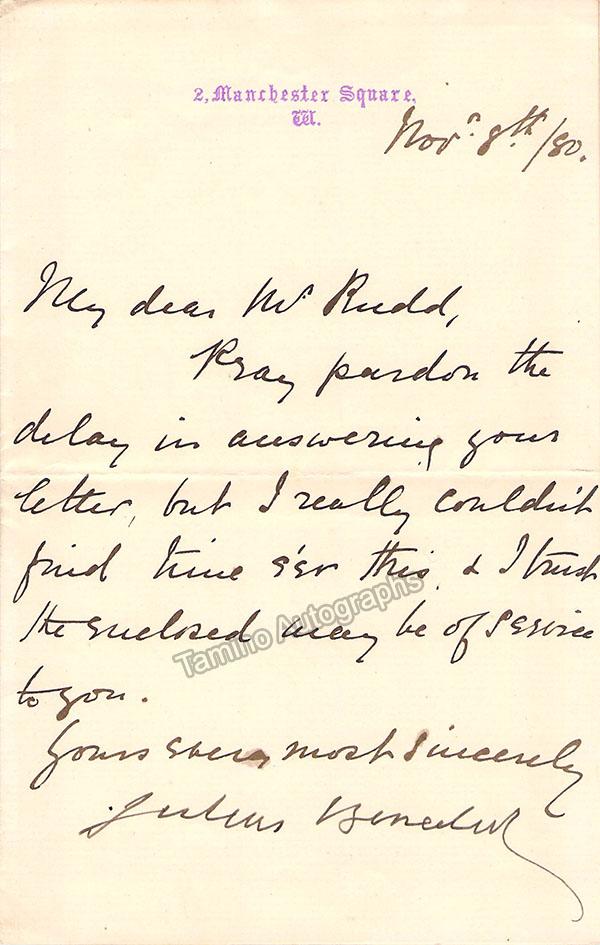 2, Manchester Square,
W.
Novr. 8th/80.
My dear Mr Rudd,
Pray pardon the
delay in answering your
letter, but I really couldn't
find time e'er this & I trust
the enclosed may be of service
to you.
Yours ever most sincerely
Julius Benedict
Tamino Autographs